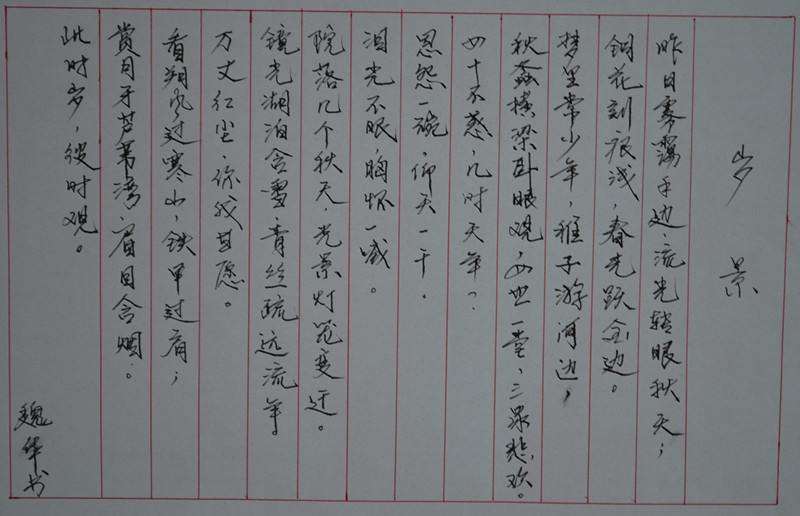 岁景
昨日雾霭手边，流光转眼秋天；
铜花刻痕浅，春光跃金边。
梦里常少年，稚子游河边，
秋蚕横梁卧眼观，四世一堂、三眾悲欢。
四十不惑，几时天年？
恩怨一碗，仰天一干。
泪光不眠，胸怀一喊。
院落几个秋天，光景灯笼变迁。
镜光湖泊含雪，青丝疏远流年。
万丈红尘，你我甘愿。
看朔风过寒山，铁甲过肩；
赏月牙芦苇湾，眉目含烟。
此时岁，彼时观。
魏华书